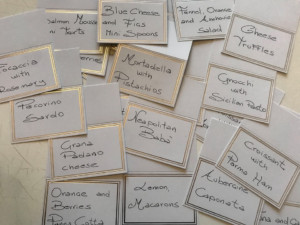 Salmon Mousse
Mini Tarts
Blue Cheese
and Figs
Mini Spoons
Fennel, Orange
and
Salad
Cheese
Truffles
Focaccia
with
Rosemary
Mortadella
with
Pistachios
Gnocchi
with
Sicilian Pesto
Pecorino
Sardo
Neapolitan
Babà
Grana
Padano
cheese
Croissant
with
Parma Ham
Aubergine
Caponata
Orange and
Berries
Panna Cotta
Lemon
Macarons